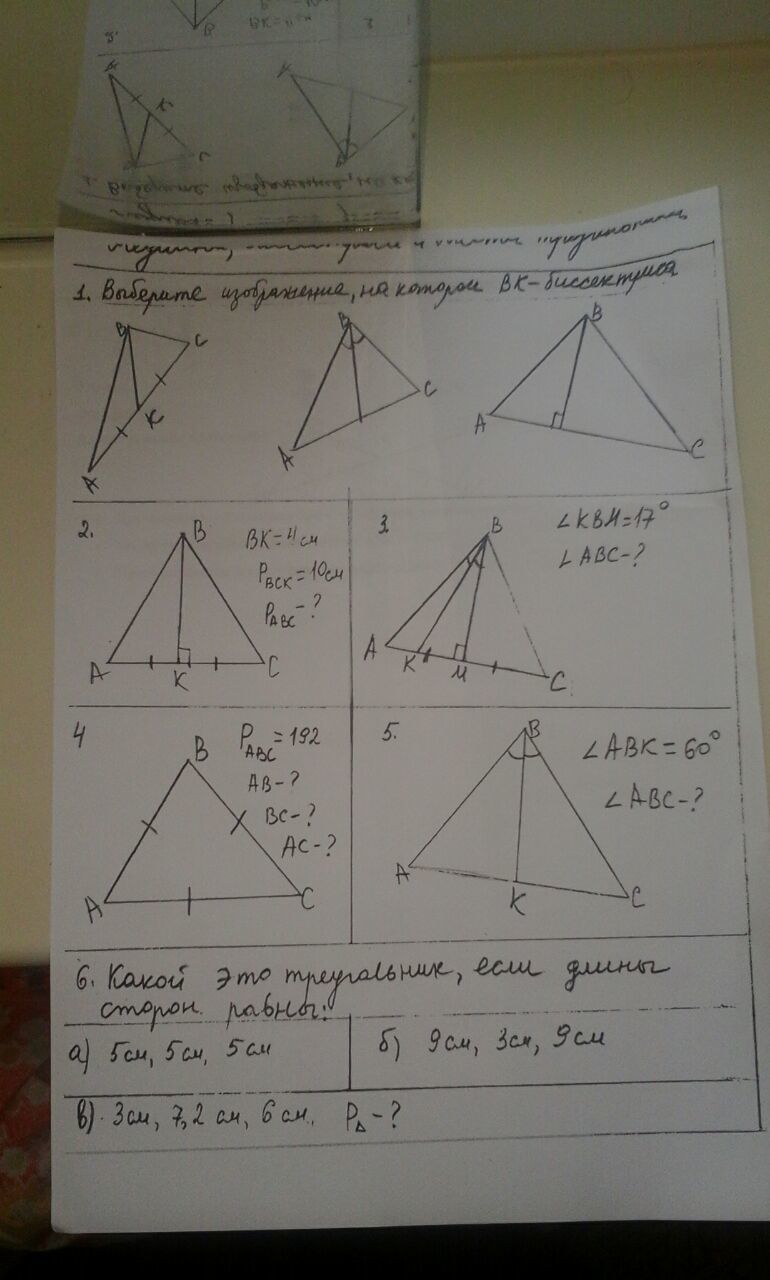 1. Выберите изображение, на котором BK - биссектриса
B C K A
B C A
B A C
2.
B
BK = 4 см
P_BCK = 10 см
P_ABC - ?
A K C
3.
B
∠KBM = 17°
∠ABC - ?
A K M C
4
B
P_ABC = 192
AB - ?
BC - ?
AC - ?
A C
5.
B
∠ABK = 60°
∠ABC - ?
A K C
6. Какой это треугольник, если длины
сторон равны:
а) 5 см, 5 см, 5 см
б) 9 см, 3 см, 9 см
в) 3 см, 7,2 см, 6 см. P_Δ - ?